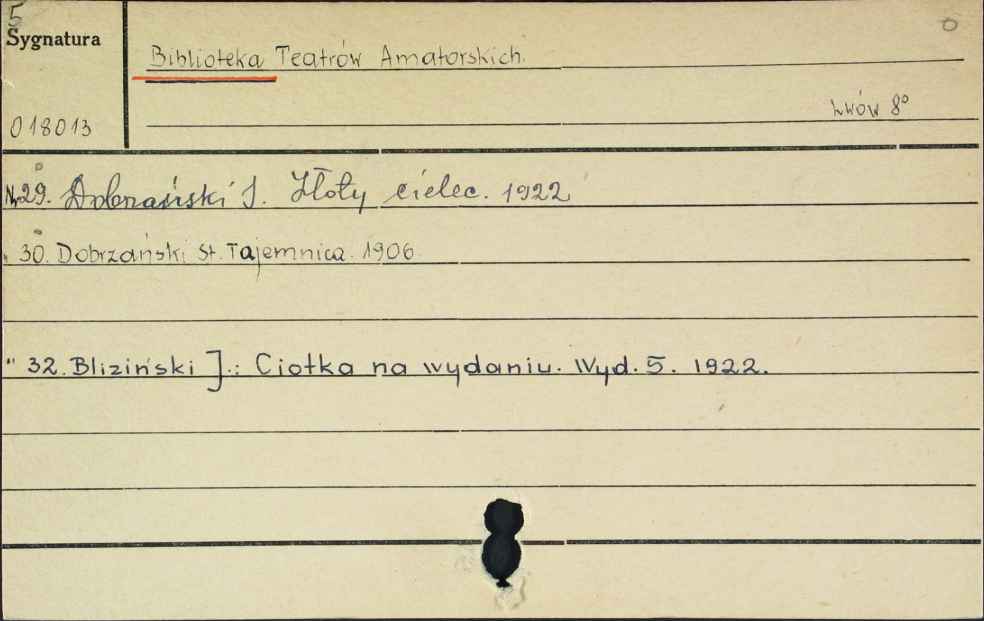 5
Sygnatura
Biblioteka Teatrów Amatorskich.
Lwów 8°
018013
Nr 29. Dobrzański S. Złoty cielec. 1922
" 30. Dobrzański St. Tajemnica. 1906
" 32. Bliziński J.: Ciotka na wydaniu. Wyd. 5. 1922.